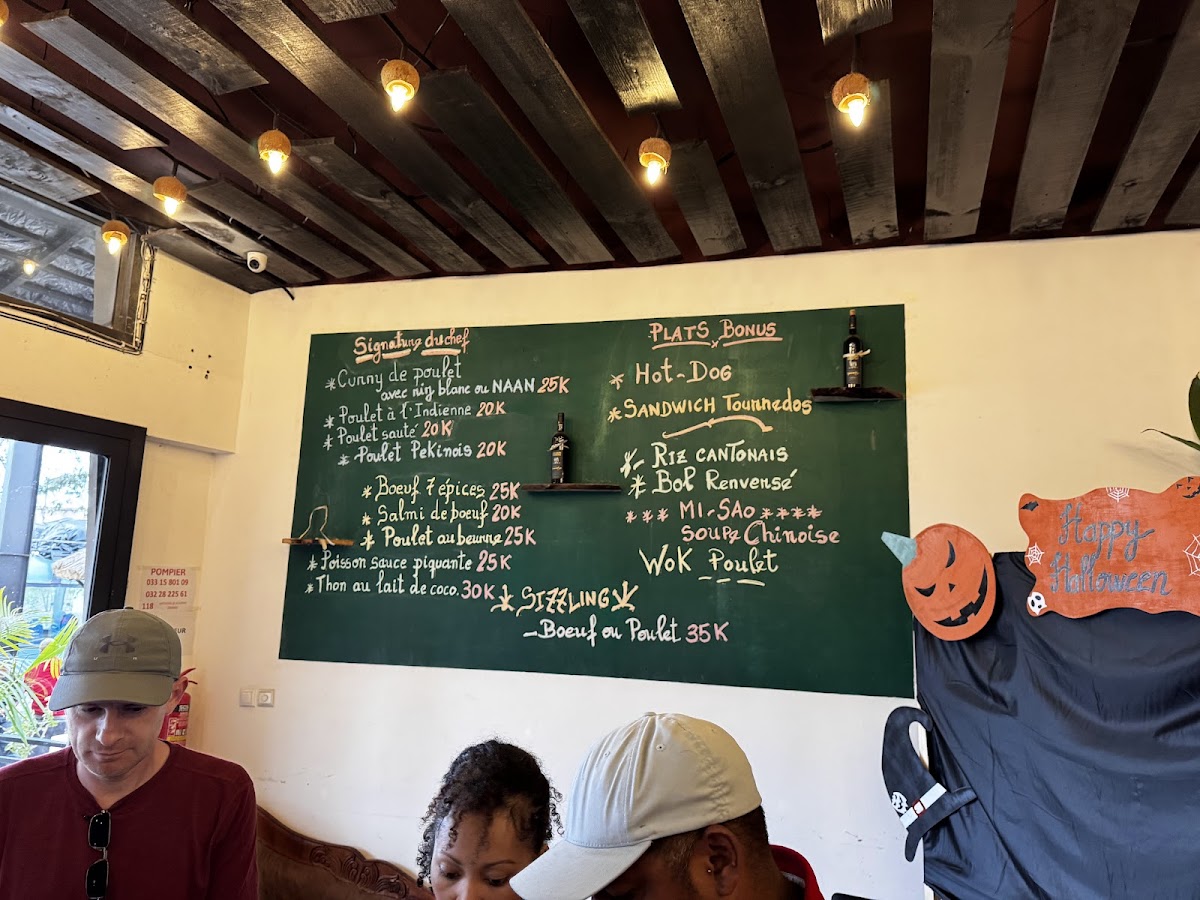 Signature du chef
*Curry de poulet
avec riz blanc ou NAAN 25K
*Poulet à l'Indienne 20K
*Poulet sauté 20K
*Poulet Pekinois 20K
*Boeuf 7 épices 25K
*Salmi de boeuf 20K
*Poulet au beurre 25K
*Poisson sauce piquante 25K
*Thon au lait de coco. 30K
PLATS BONUS
* HOT-DOG
*SANDWICH Tournedos
*- RIZ CANTONAIS
* Bol Renversé
*** MI-SAO ****
SOUPE Chinoise
WOK Poulet
*SIZZLING*
-Boeuf ou Poulet 35K
POMPIER
033 15 801 09
032 28 225 61
118
Happy
Halloween